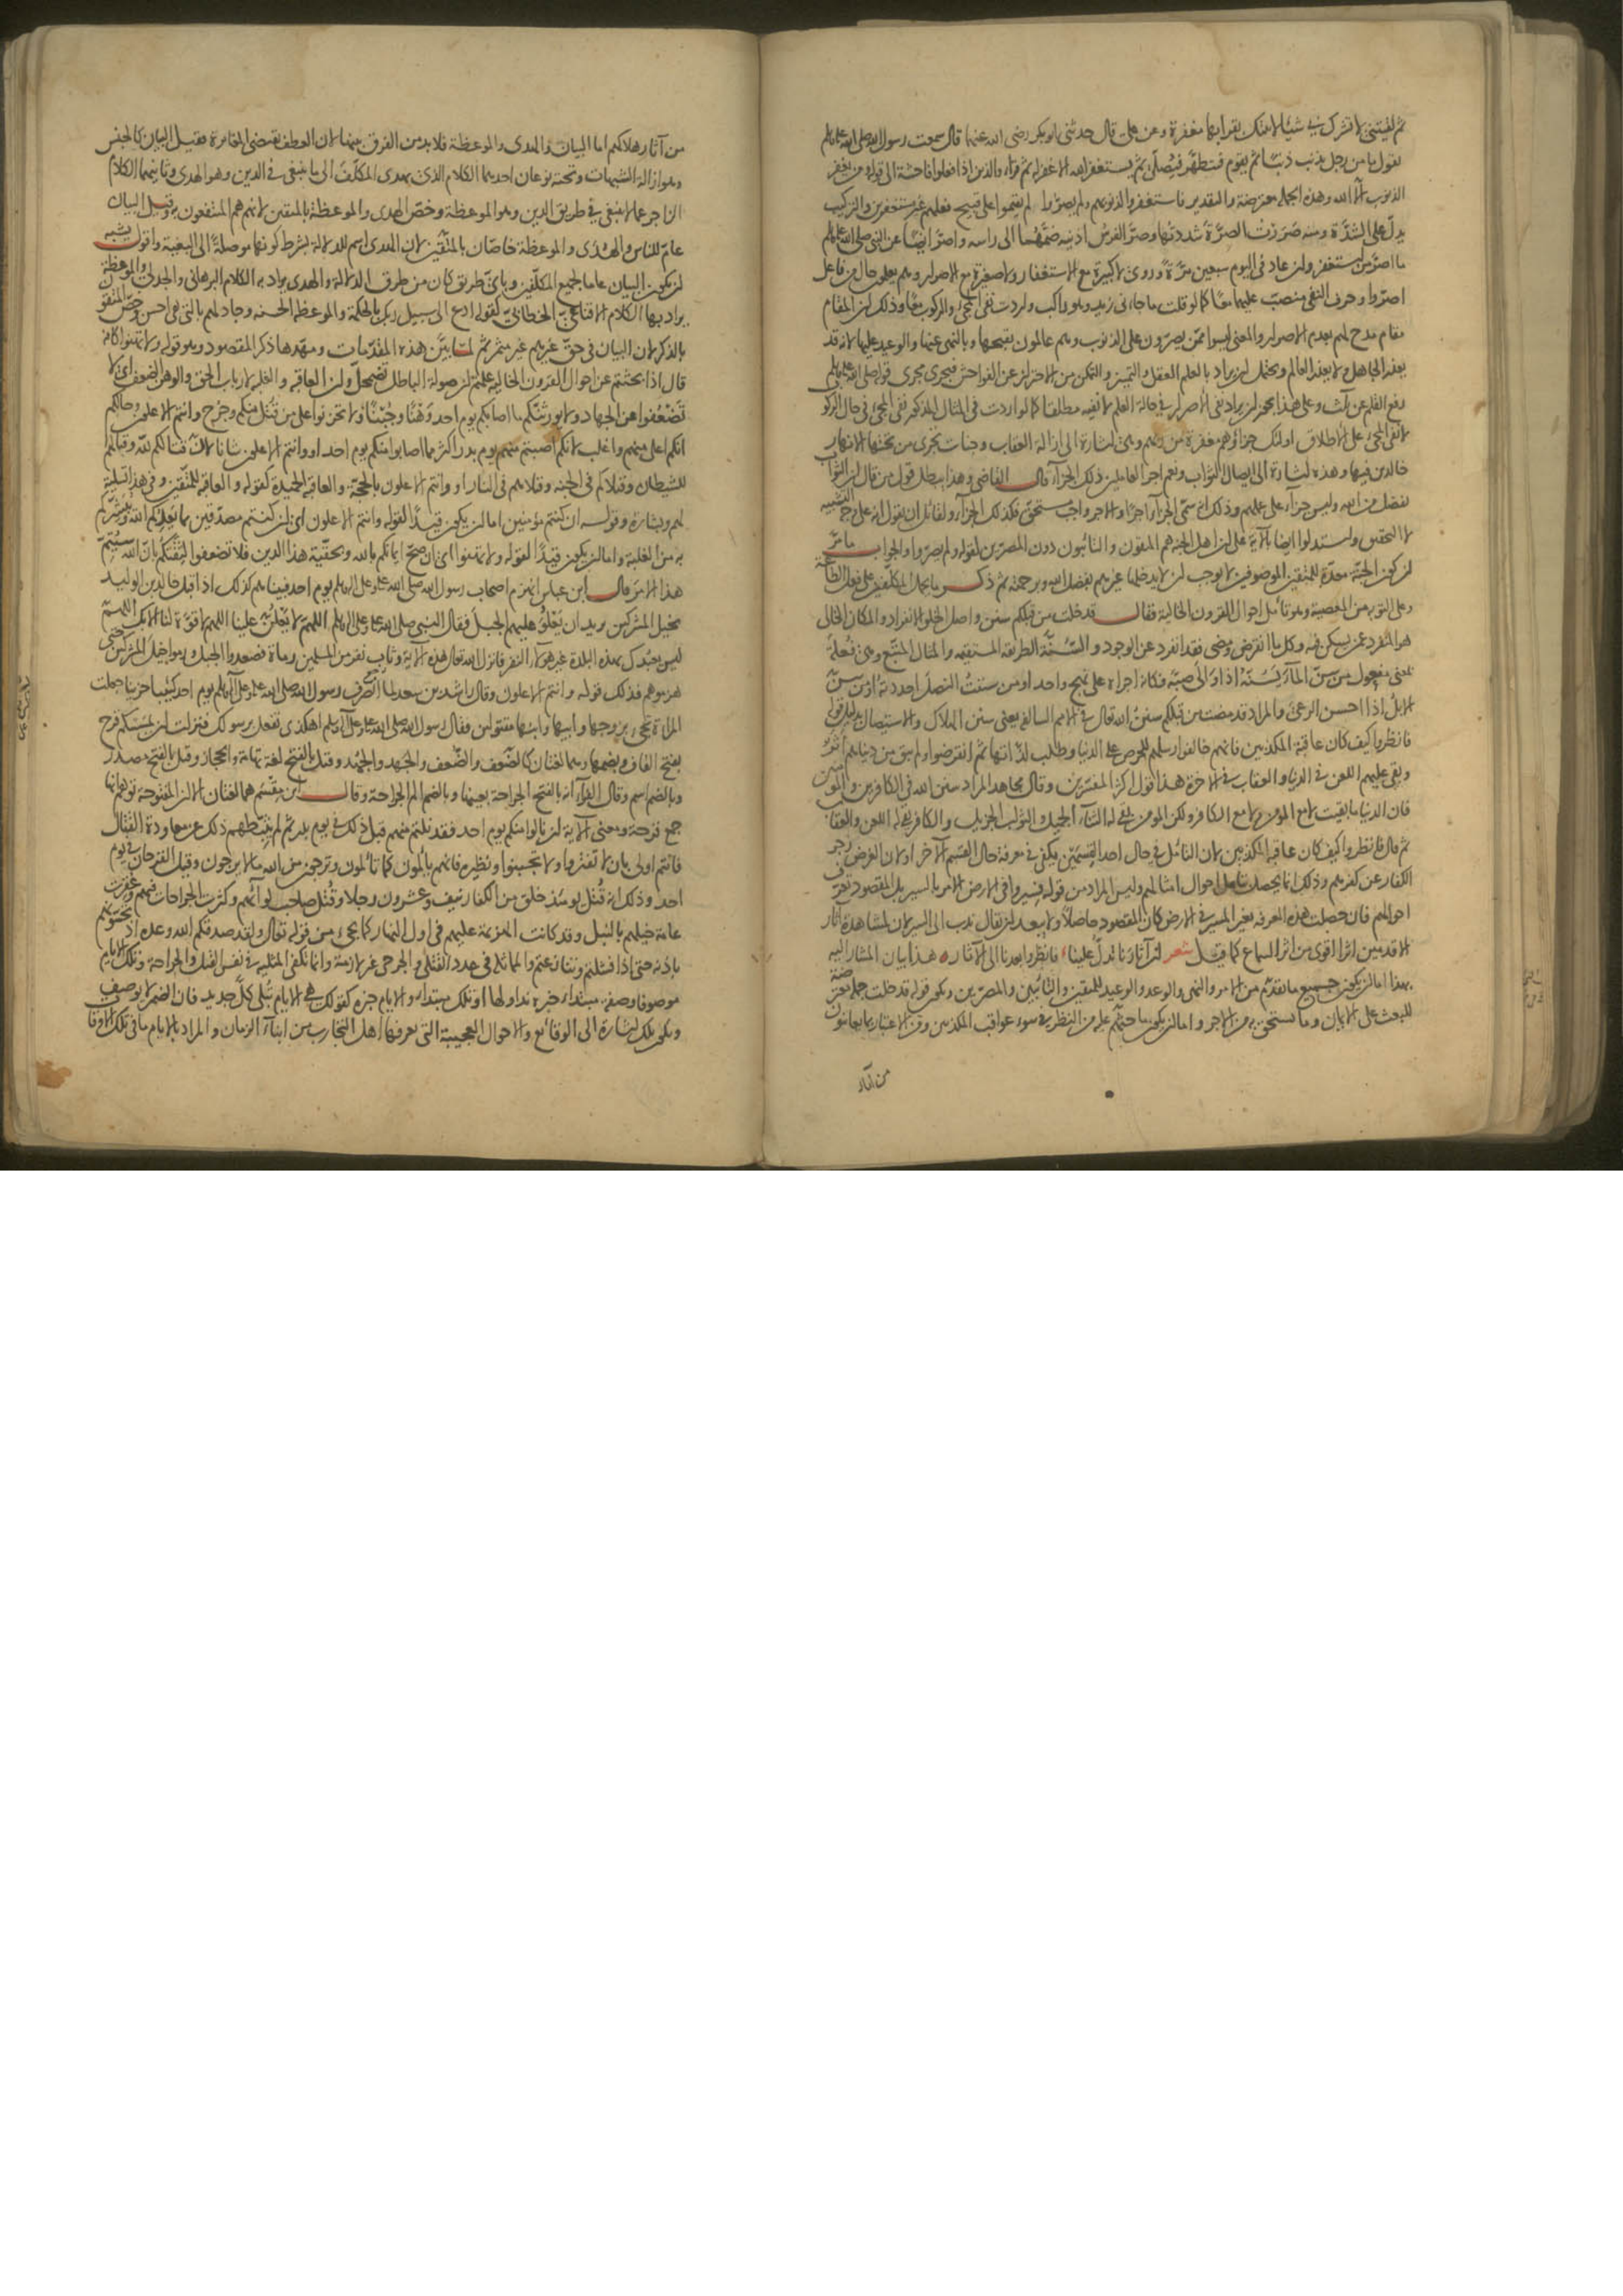 ثم لقيتني لا تشرك بي شيئا لاتيتك بقرابها مغفرة وعن علي قال حدثني ابو بكر رضي الله عنهما قال سمعت رسول الله صلى الله عليه وسلم
يقول ما من رجل يذنب ذنبا ثم يقوم فيتطهر فيصلي ثم يستغفر الله الا غفر له ثم قرأ والذين اذا فعلوا فاحشة الى قوله ومن يغفر
الذنوب الا الله وهذه الجملة معترضة والتقدير فاستغفروا لذنوبهم ولم يصروا لم يقيموا على قبيح فعلهم غير مستغفرين والتركيب
يدل على الشدة ومنه صررت الصرة شددتها وصر الفرس اذنيه ضمهما الى راسه واصر ايضا عن النبي صلى الله عليه وسلم
ما اصر من استغفر وان عاد في اليوم سبعين مرة وروي لا كبيرة مع الاستغفار ولا صغيرة مع الاصرار وهم يعلمون حال من فاعل
اصروا وحرف النفي منصب عليهما معا كما لو قلت ما جاءني زيد وهو راكب واردت نفي المجيء والركوب معا وذلك ان المقام
مقام مدح لهم بعدم الاصرار والمعنى ليسوا ممن يصرون على الذنوب وهم عالمون بقبحها وبالنهي عنها والوعيد عليها لانه قد
يعذر الجاهل ولا يعذر العالم ويحتمل ان يراد بالعلم العقل والتمييز والتمكن من الاحتراز عن الفواحش فيجري مجرى قوله صلى الله عليه وسلم
رفع القلم عن ثلث وعلى هذا يجوز ان يراد نفي الاصرار في حالة العلم لا نفيه مطلقا كما لو اردت في المثال المذكور نفي المجيء في حال الركوب
لا نفي المجيء على الاطلاق اولئك جزاؤهم مغفرة من ربهم وهي اشارة الى ازالة العقاب وجنات تجري من تحتها الانهار
خالدين فيها وهذه اشارة الى ايصال الثواب ونعم اجر العاملين ذلك الجزاء قال القاضي وهذا يبطل قول من قال ان الثواب
تفضل من الله وليس جزاء على عملهم وذلك انه سمى الجزاء اجرا والاجر واجب مستحق فكذلك الجزاء ولقائل ان يقول انه على وجه التشبيه
لا التحقيق واستدلوا ايضا بالآية على ان اهل الجنة هم المتقون والتائبون دون المصرين لقوله ولم يصروا والجواب ما مر
ان كون الجنة معدة للمتقين الموصوفين لا يوجب ان لا يدخلها غيرهم بفضل الله وبرحمته ثم ذكر ما يحمل المكلفين على فعل الطاعة
وعلى التوبة من المعصية وهو تامل احوال القرون الخالية فقال قد خلت من قبلكم سنن واصل الخلو الانفراد والمكان الخالي
هو المنفرد عمن يسكن فيه وكل ما انقرض ومضى فقد انفرد عن الوجود والسنة الطريقة المستقيمة والمثال المتبع وهي فعلة
بمعنى مفعول من سن الماء يسنه اذا والى صبه فكانه اجراه على نهج واحد او من سننت النصل احددته او من سن
الابل اذا احسن الرعي والمراد قد مضت من قبلكم سنن الله تعالى في الامم السالفة يعني سنن الهلاك والاستيصال بدليل قوله
فانظروا كيف كان عاقبة المكذبين فانهم خالفوا رسلهم للحرص على الدنيا وطلب لذاتها ثم انقرضوا ولم يبق من دنياهم اثر
وبقي عليهم اللعن في الدنيا والعقاب في الاخرة هذا قول اكثر المفسرين وقال مجاهد المراد سنن الله في الكافرين والمؤمنين
فان الدنيا ما بقيت لا مع المؤمن ولا مع الكافر ولكن المؤمن بقي له الثناء الجميل والثواب الجزيل والكافر بقي له اللعن والعقاب
ثم قال فانظروا كيف كان عاقبة المكذبين لان التامل في حال احد القسمين يكفي في معرفة حال القسم الآخر او لان الغرض زجر
الكفار عن كفرهم وذلك انما يحصل بتامل احوال امثالهم وليس المراد من قوله فسيروا في الارض الامر بالسير بل المقصود تعرف
احوالهم فان حصلت هذه المعرفة بغير المسير في الارض كان المقصود حاصلا ولا يبعد ان يقال ندب الى السير لان لمشاهدة آثار
الاقدمين اثرا اقوى من اثر السماع كما قيل شعر ان آثارنا تدل علينا فانظروا بعدنا الى الآثار هذا بيان المشار اليه
بهذا اما ان يكون جميع ما تقدم من الامر والنهي والوعد والوعيد للمتقين والتائبين والمصرين ويكون قوله قد خلت جملة معترضة
للبعث على الايمان وما يستحق به من الاجر واما ان يكون ما حثهم عليه من النظر في سوء عواقب المكذبين ومن الاعتبار بما يعاينون
من آثار
من آثار هلاكهم اما البيان والهدى والموعظة فلا بد من الفرق بينها لان العطف يقتضي المغايرة فقيل البيان كالجنس
وهو ازالة الشبهات وتحته نوعان احدهما الكلام الذي يهدي المكلف الى ما ينبغي في الدين وهو الهدى وثانيهما الكلام
الزاجر عما لا ينبغي في طريق الدين وهو الموعظة وخص الهدى والموعظة بالمتقين لانهم هم المنتفعون به وقيل البيان
عام للناس والهدى والموعظة خاصان بالمتقين لان الهدى اسم للدلالة بشرط كونها موصلة الى البغية واقول يشبه
ان يكون البيان عاما لجميع المكلفين وباي طريق كان من طرق الدلالة والهدى يراد به الكلام البرهاني والجدلي والموعظة
يراد بها الكلام الاقناعي الخطابي كقوله ادع الى سبيل ربك بالحكمة والموعظة الحسنة وجادلهم بالتي هي احسن وخص المتقون
بالذكر لان البيان في حق غيرهم غير مثمر ثم لما بين هذه المقدمات ومهدها ذكر المقصود وهو قوله ولا تهنوا كانه
قال اذا بحثتم عن احوال القرون الخالية علمتم ان صولة الباطل تضمحل وان العاقبة والغلبة لارباب الحق والوهن الضعف اي لا
تضعفوا عن الجهاد ولا يورثنكم ما اصابكم يوم احد وهنا وجبنا ولا تحزنوا على من قتل منكم وجرح وانتم الاعلون وحالكم
انكم اعلى منهم واغلب لانكم اصبتم منهم يوم بدر اكثر مما اصابوا منكم يوم احد او وانتم الاعلون شانا لان قتالكم لله وقتالهم
للشيطان وقتلاكم في الجنة وقتلاهم في النار او وانتم الاعلون بالحجة والعاقبة الحميدة كقوله والعاقبة للمتقين وفي هذا تسلية
لهم وبشارة وقوله ان كنتم مؤمنين اما ان يكون قيدا لقوله وانتم الاعلون اي ان كنتم مصدقين بما يعدكم الله ويبشركم
به من الغلبة واما ان يكون قيدا لقوله ولا تهنوا اي ان صح ايمانكم بالله وبحقية هذا الدين فلا تضعفوا لثقتكم بان الله سيتم
هذا الامر قال ابن عباس انهزم اصحاب رسول الله صلى الله عليه وعلى آله وسلم يوم احد فبينا هم كذلك اذ اقبل خالد بن الوليد
بخيل المشركين يريد ان يعلو عليهم الجبل فقال النبي صلى الله عليه وعلى آله وسلم اللهم لا يعلن علينا اللهم لا قوة لنا الا بك اللهم
ليس يعبدك بهذه البلدة غير هؤلاء النفر فانزل الله تعالى هذه الآية وثاب نفر من المسلمين رماة فصعدوا الجبل ورموا خيل المشركين حتى
هزموهم فذلك قوله وانتم الاعلون وقال راشد بن سعد لما انصرف رسول الله صلى الله عليه وعلى آله وسلم يوم احد كئيبا حزينا جعلت
المراة تجيء بزوجها وابيها وابنها مقتولين فقال رسول الله صلى الله عليه وعلى آله وسلم اهكذى تفعل برسولك فنزلت ان يمسسكم قرح
بفتح القاف وبضمها وهما لغتان كالضعف والضعف والجهد والجهد وقيل بالفتح لغة تهامة والحجاز وقيل بالفتح مصدر
وبالضم اسم وقال الفراء انه بالفتح الجراحة بعينها وبالضم الم الجراحة وقال ابن مقسم هما لغتان الا ان المفتوحة توهم انها
جمع قرحة ومعنى الآية ان نالوا منكم يوم احد فقد نلتم منهم قبل ذلك في يوم بدر ثم لم يثبطهم ذلك عن معاودة القتال
فانتم اولى بان لا تفتروا ولا تجبنوا ونظيره فانهم يألمون كما تألمون وترجون من الله ما لا يرجون وقيل القرحان في يوم
احد وذلك انه قتل يومئذ خلق من الكفار نيف وعشرون رجلا وقتل صاحب لوائهم وكثرت الجراحات فيهم وعقرت
عامة خيلهم بالنبل وقد كانت الهزيمة عليهم في اول النهار كما يجيء من قوله تعالى ولقد صدقكم الله وعده اذ تحسونهم
باذنه حتى اذا فشلتم وتنازعتم والمماثلة في عدد القتلى والجرحى غير لازمة وانما تكفي المثلية في نفس القتل والجراحة وتلك الايام
موصوفا وصفة مبتدأ خبره نداولها او تلك مبتدأ والايام خبره كقولك هي الايام تبلي كل جديد فان الضمير لا يوصف
ويكون تلك اشارة الى الوقائع والاحوال العجيبة التي يعرفها اهل التجارب من ابناء الزمان والمراد بالايام ما في تلك الاوقات